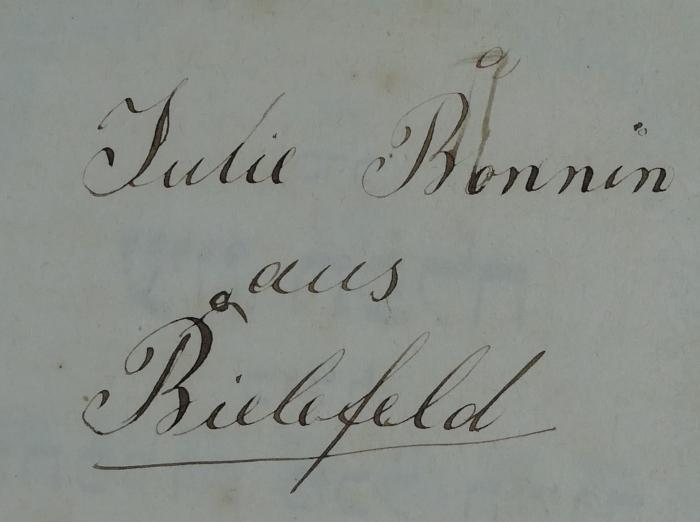 Julie Bonnin
aus
Bielefeld